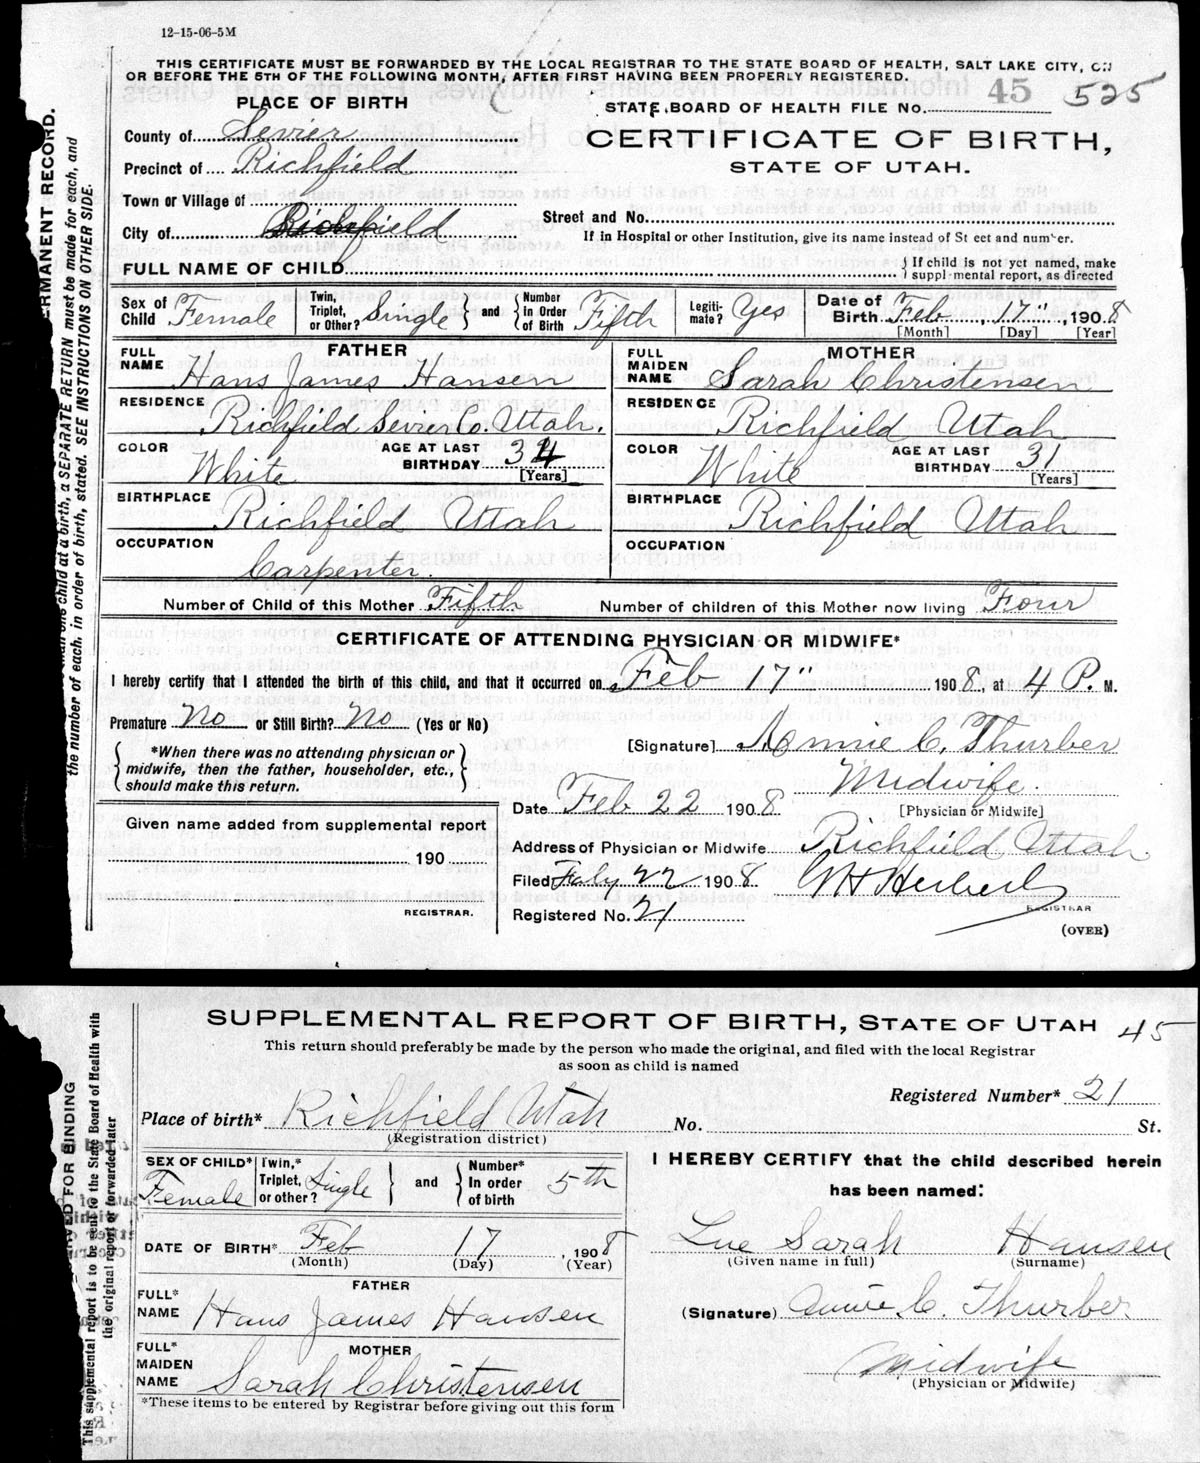 12-15-06-5M
THIS CERTIFICATE MUST BE FORWARDED BY THE LOCAL REGISTRAR TO THE STATE BOARD OF HEALTH, SALT LAKE CITY, ON
OR BEFORE THE 5TH OF THE FOLLOWING MONTH, AFTER FIRST HAVING BEEN PROPERLY REGISTERED.
PLACE OF BIRTH
STATE BOARD OF HEALTH FILE No. 45 525
County of Sevier
CERTIFICATE OF BIRTH,
Precinct of Richfield
STATE OF UTAH.
Town or Village of
Street and No.
City of Richfield
If in Hospital or other Institution, give its name instead of St eet and number.
FULL NAME OF CHILD
{ If child is not yet named, make
suppl-mental report, as directed
Sex of Child Female
Twin, Triplet, or Other? Single } and { Number in Order of Birth Fifth
Legiti-mate? Yes
Date of Birth Feb 17", 1908
[Month] [Day] [Year]
FATHER
FULL NAME Hans James Hansen
RESIDENCE Richfield Sevier Co. Utah.
COLOR White
AGE AT LAST BIRTHDAY 34
[Years]
BIRTHPLACE Richfield Utah
OCCUPATION
Carpenter.
MOTHER
FULL MAIDEN NAME Sarah Christensen
RESIDENCE Richfield Utah
COLOR White
AGE AT LAST BIRTHDAY 31
[Years]
BIRTHPLACE Richfield Utah
OCCUPATION
Number of Child of this Mother Fifth
Number of children of this Mother now living Four
CERTIFICATE OF ATTENDING PHYSICIAN OR MIDWIFE*
I hereby certify that I attended the birth of this child, and that it occurred on Feb 17" 1908, at 4 P. M.
Premature No or Still Birth? No (Yes or No)
[Signature] Annie C. Thurber
{ *When there was no attending physician or
midwife, then the father, householder, etc.,
should make this return. }
Midwife.
[Physician or Midwife]
Date Feb 22 1908
Given name added from supplemental report
190
REGISTRAR.
Address of Physician or Midwife Richfield Utah.
Filed 22 1908 Herbert
REGISTRAR
Registered No. 21
(OVER)
ERMANENT RECORD.
child at a birth, a SEPARATE RETURN must be made for each, and
the number of each, in order of birth, stated. SEE INSTRUCTIONS ON OTHER SIDE.
SUPPLEMENTAL REPORT OF BIRTH, STATE OF UTAH 45
This return should preferably be made by the person who made the original, and filed with the local Registrar
as soon as child is named
Registered Number* 21
Place of birth* Richfield Utah
(Registration district)
No. St.
SEX OF CHILD* Female
Twin,* Triplet, or other? Single } and { Number* In order of birth 5th
DATE OF BIRTH* Feb 17, 1908
(Month) (Day) (Year)
FATHER
FULL* NAME Hans James Hansen
MOTHER
FULL* MAIDEN NAME Sarah Christensen
*These items to be entered by Registrar before giving out this form
I HEREBY CERTIFY that the child described herein
has been named:
Lue Sarah Hansen
(Given name in full) (Surname)
(Signature) Annie C. Thurber
Midwife
(Physician or Midwife)
RVED FOR BINDING
This supplemental report is to be sent to the State Board of Health with
the original report or forwarded later